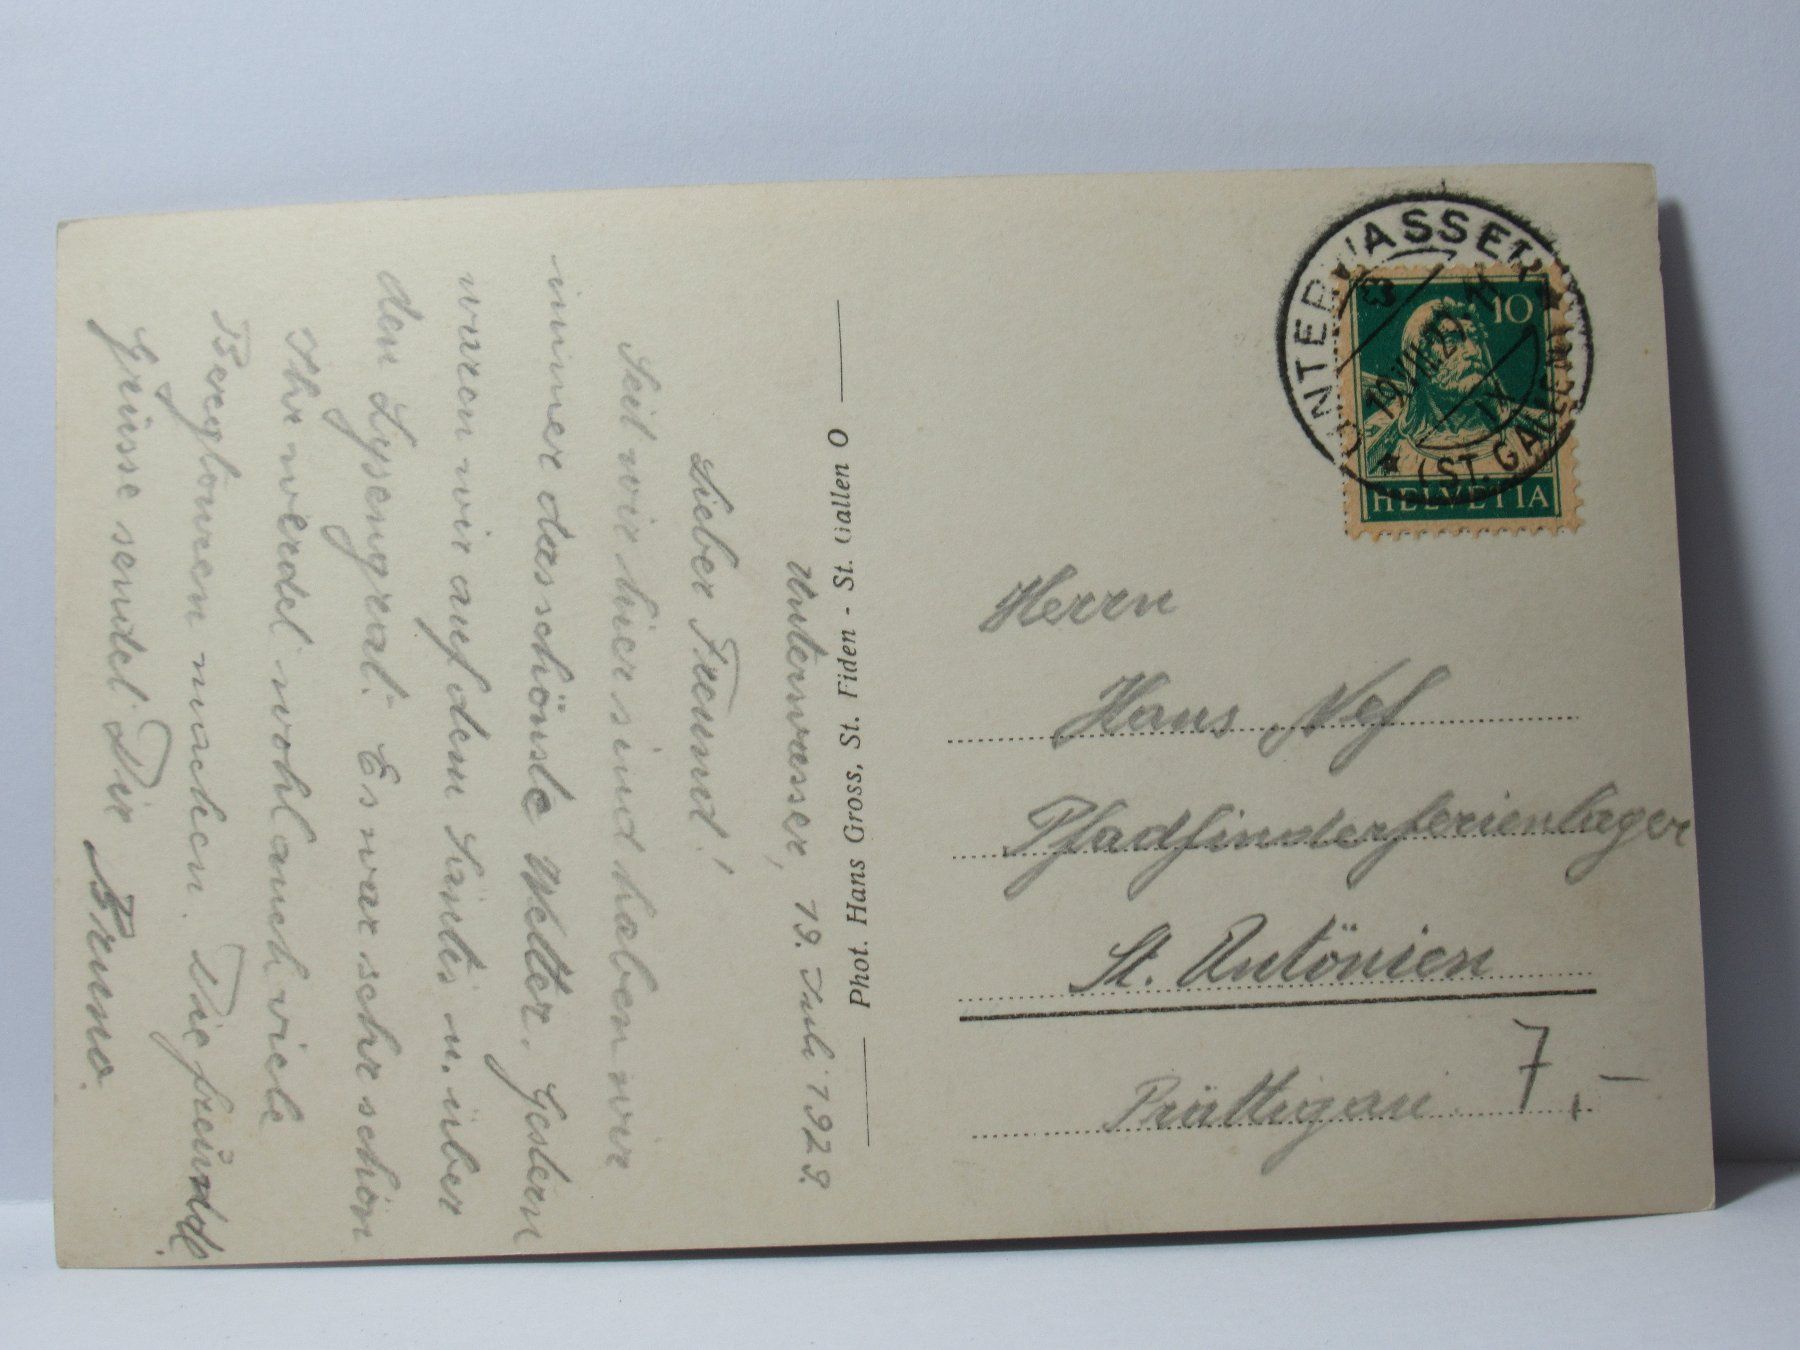 Unterwasser, 19. Juli 1929.
Lieber Freund!
Seit wir hier sind haben wir
immer das schönste Wetter. Gestern
waren wir auf dem Säntis u. über
den Lysengrat. Es war sehr schön
Ihr werdet wohl auch viele
Bergtouren machen. Die freundl.
Grüsse sendet Dir Bruno.
Phot. Hans Gross, St. Fiden - St. Gallen O
UNTERWASSER
19.VII.29.11
IX
(ST. GALLEN)
10
HELVETIA
Herrn
Hans Nef
Pfadfinderferienlager
St. Antönien
Prättigau
7,-